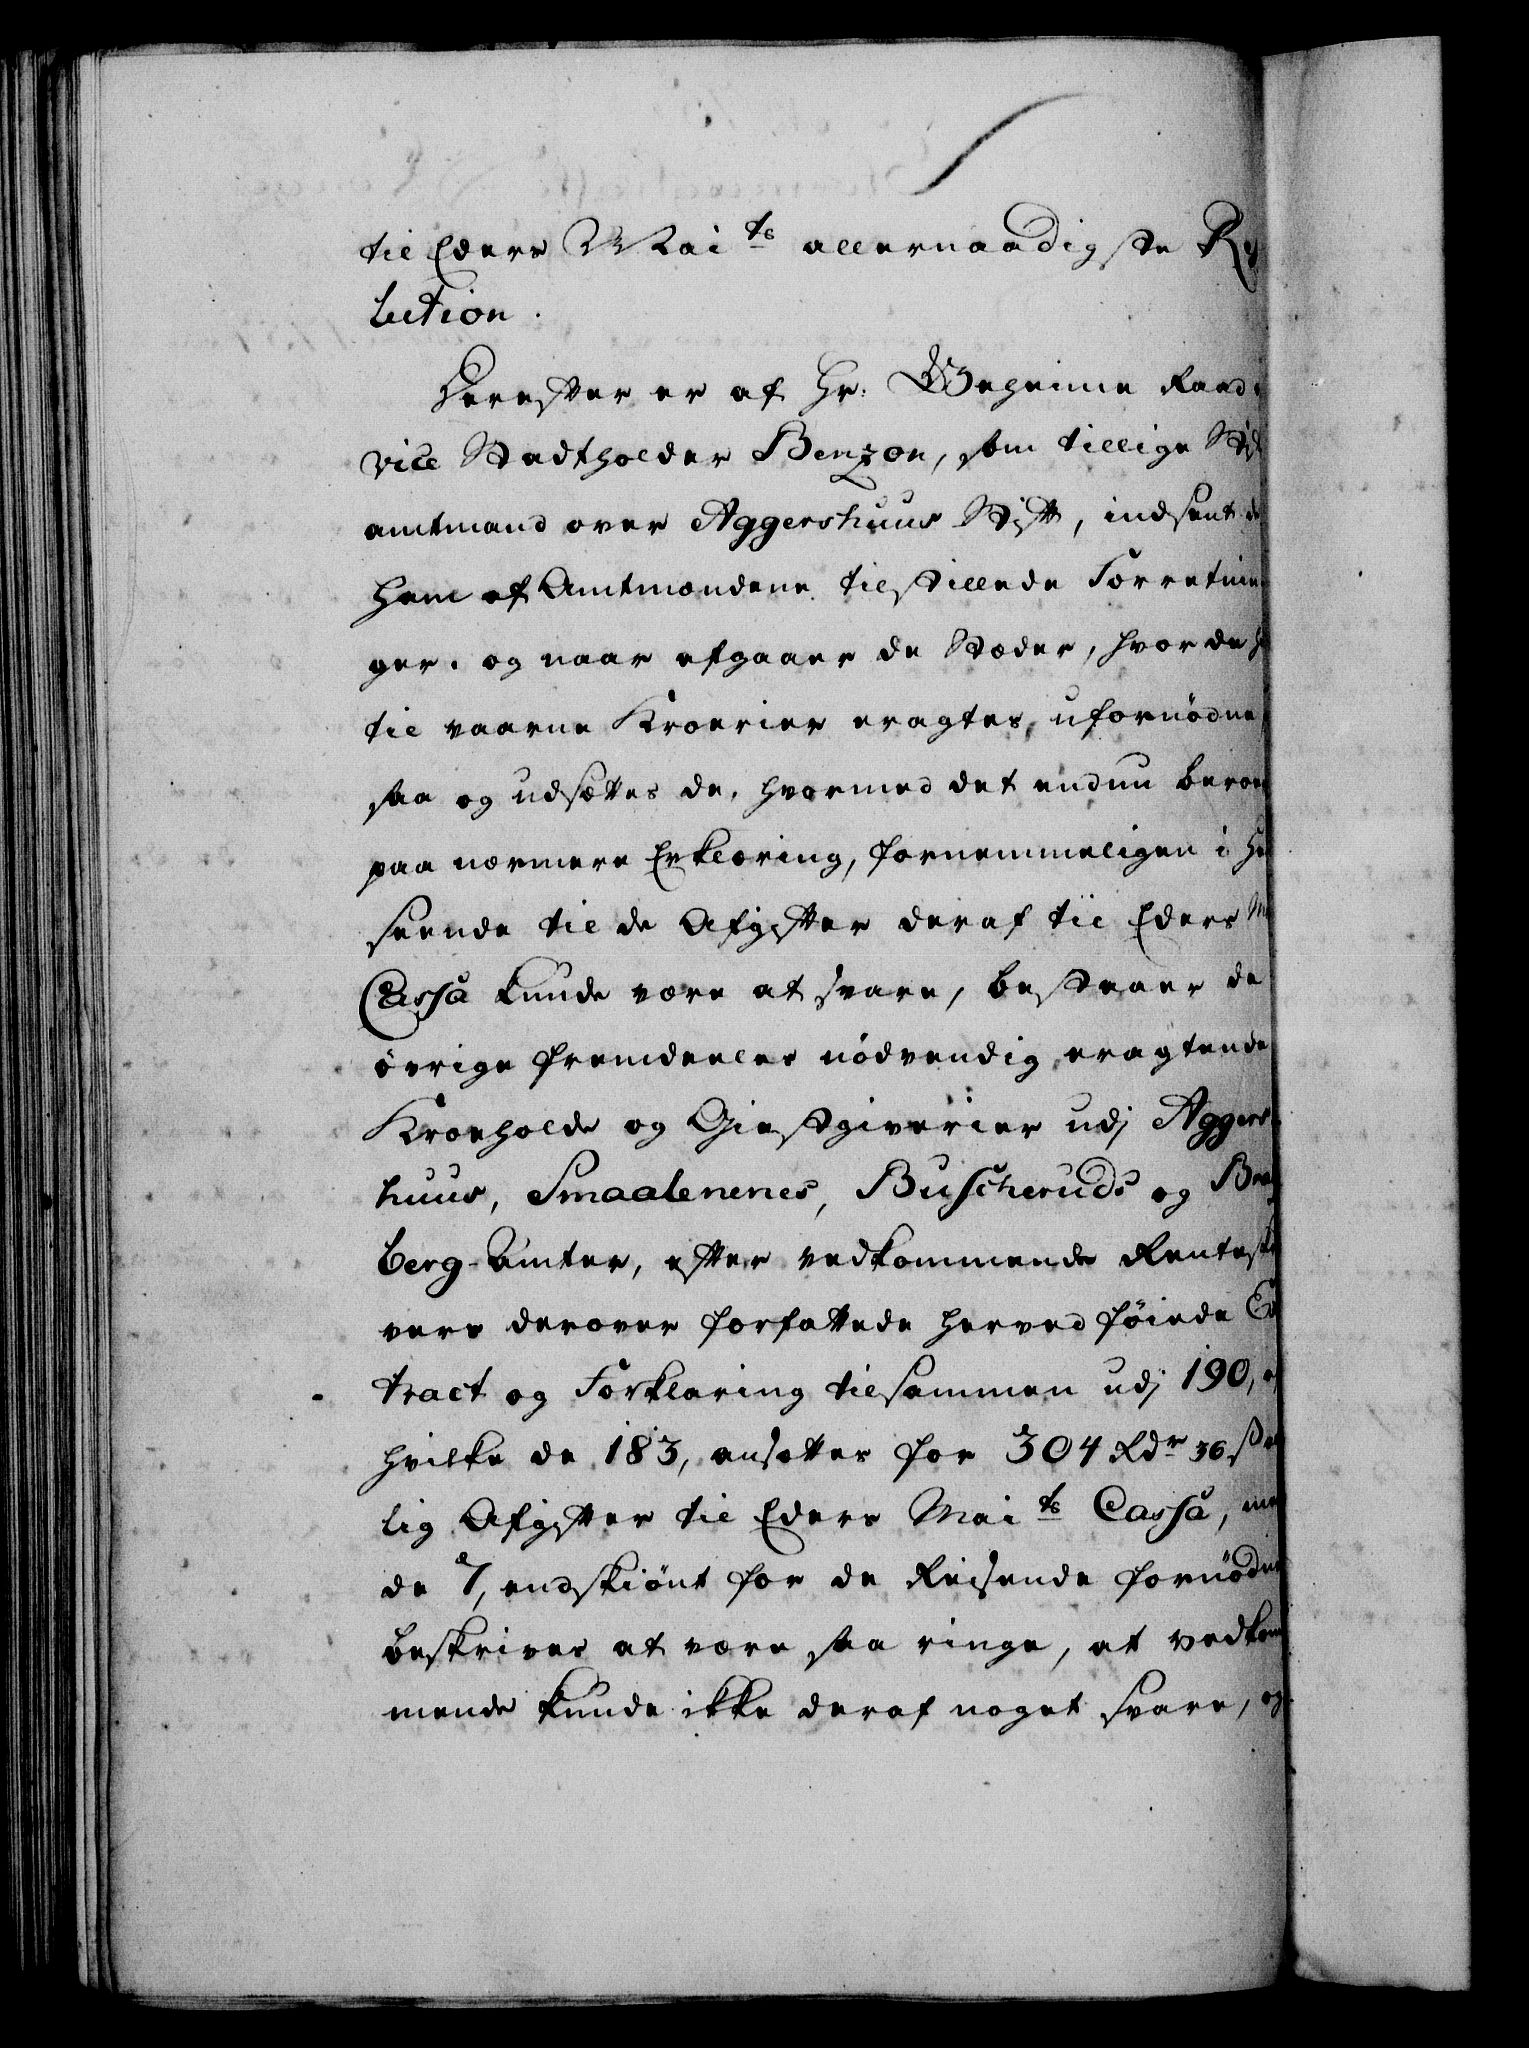 til Eders Mai^ts allernaadigste
lution.
Herefter er af Hr: Geheime Raad
vice Stadtholder Benzon, som tillige
amtmand over Aggershuus Stift, indsent
ham af Amtmændene tilstillede Forretnin
ger. og naar afgaaer de Stæder, hvor de
til vaarne Kroerier eragtes ufornødne
saa og udsættes de, hvormed det endnu
paa nærmere Erklæring, fornemmeligen i
seende til de Afgifter deraf til Eders
Cassa kunde være at svare, bestaaer de
øvrige fremdeeles nødvendig eragtende
Kroeholde og Giestgiverier udj Aggers
huus, Smaalenenes, Buscheruds og
berg Amter, efter vedkommende
vers derover forfattede herved føiede
tract og Forklaring tilsammen udj 190,
hvilke de 183, ansættes for 304 Rdr 36 ß
lig Afgifter til Eders Mai^ts Cassa,
de 7, endskiønt for de Reisende fornødne
beskrives at være saa ringe, at vedkom
mende kunde ikke deraf noget svare, og